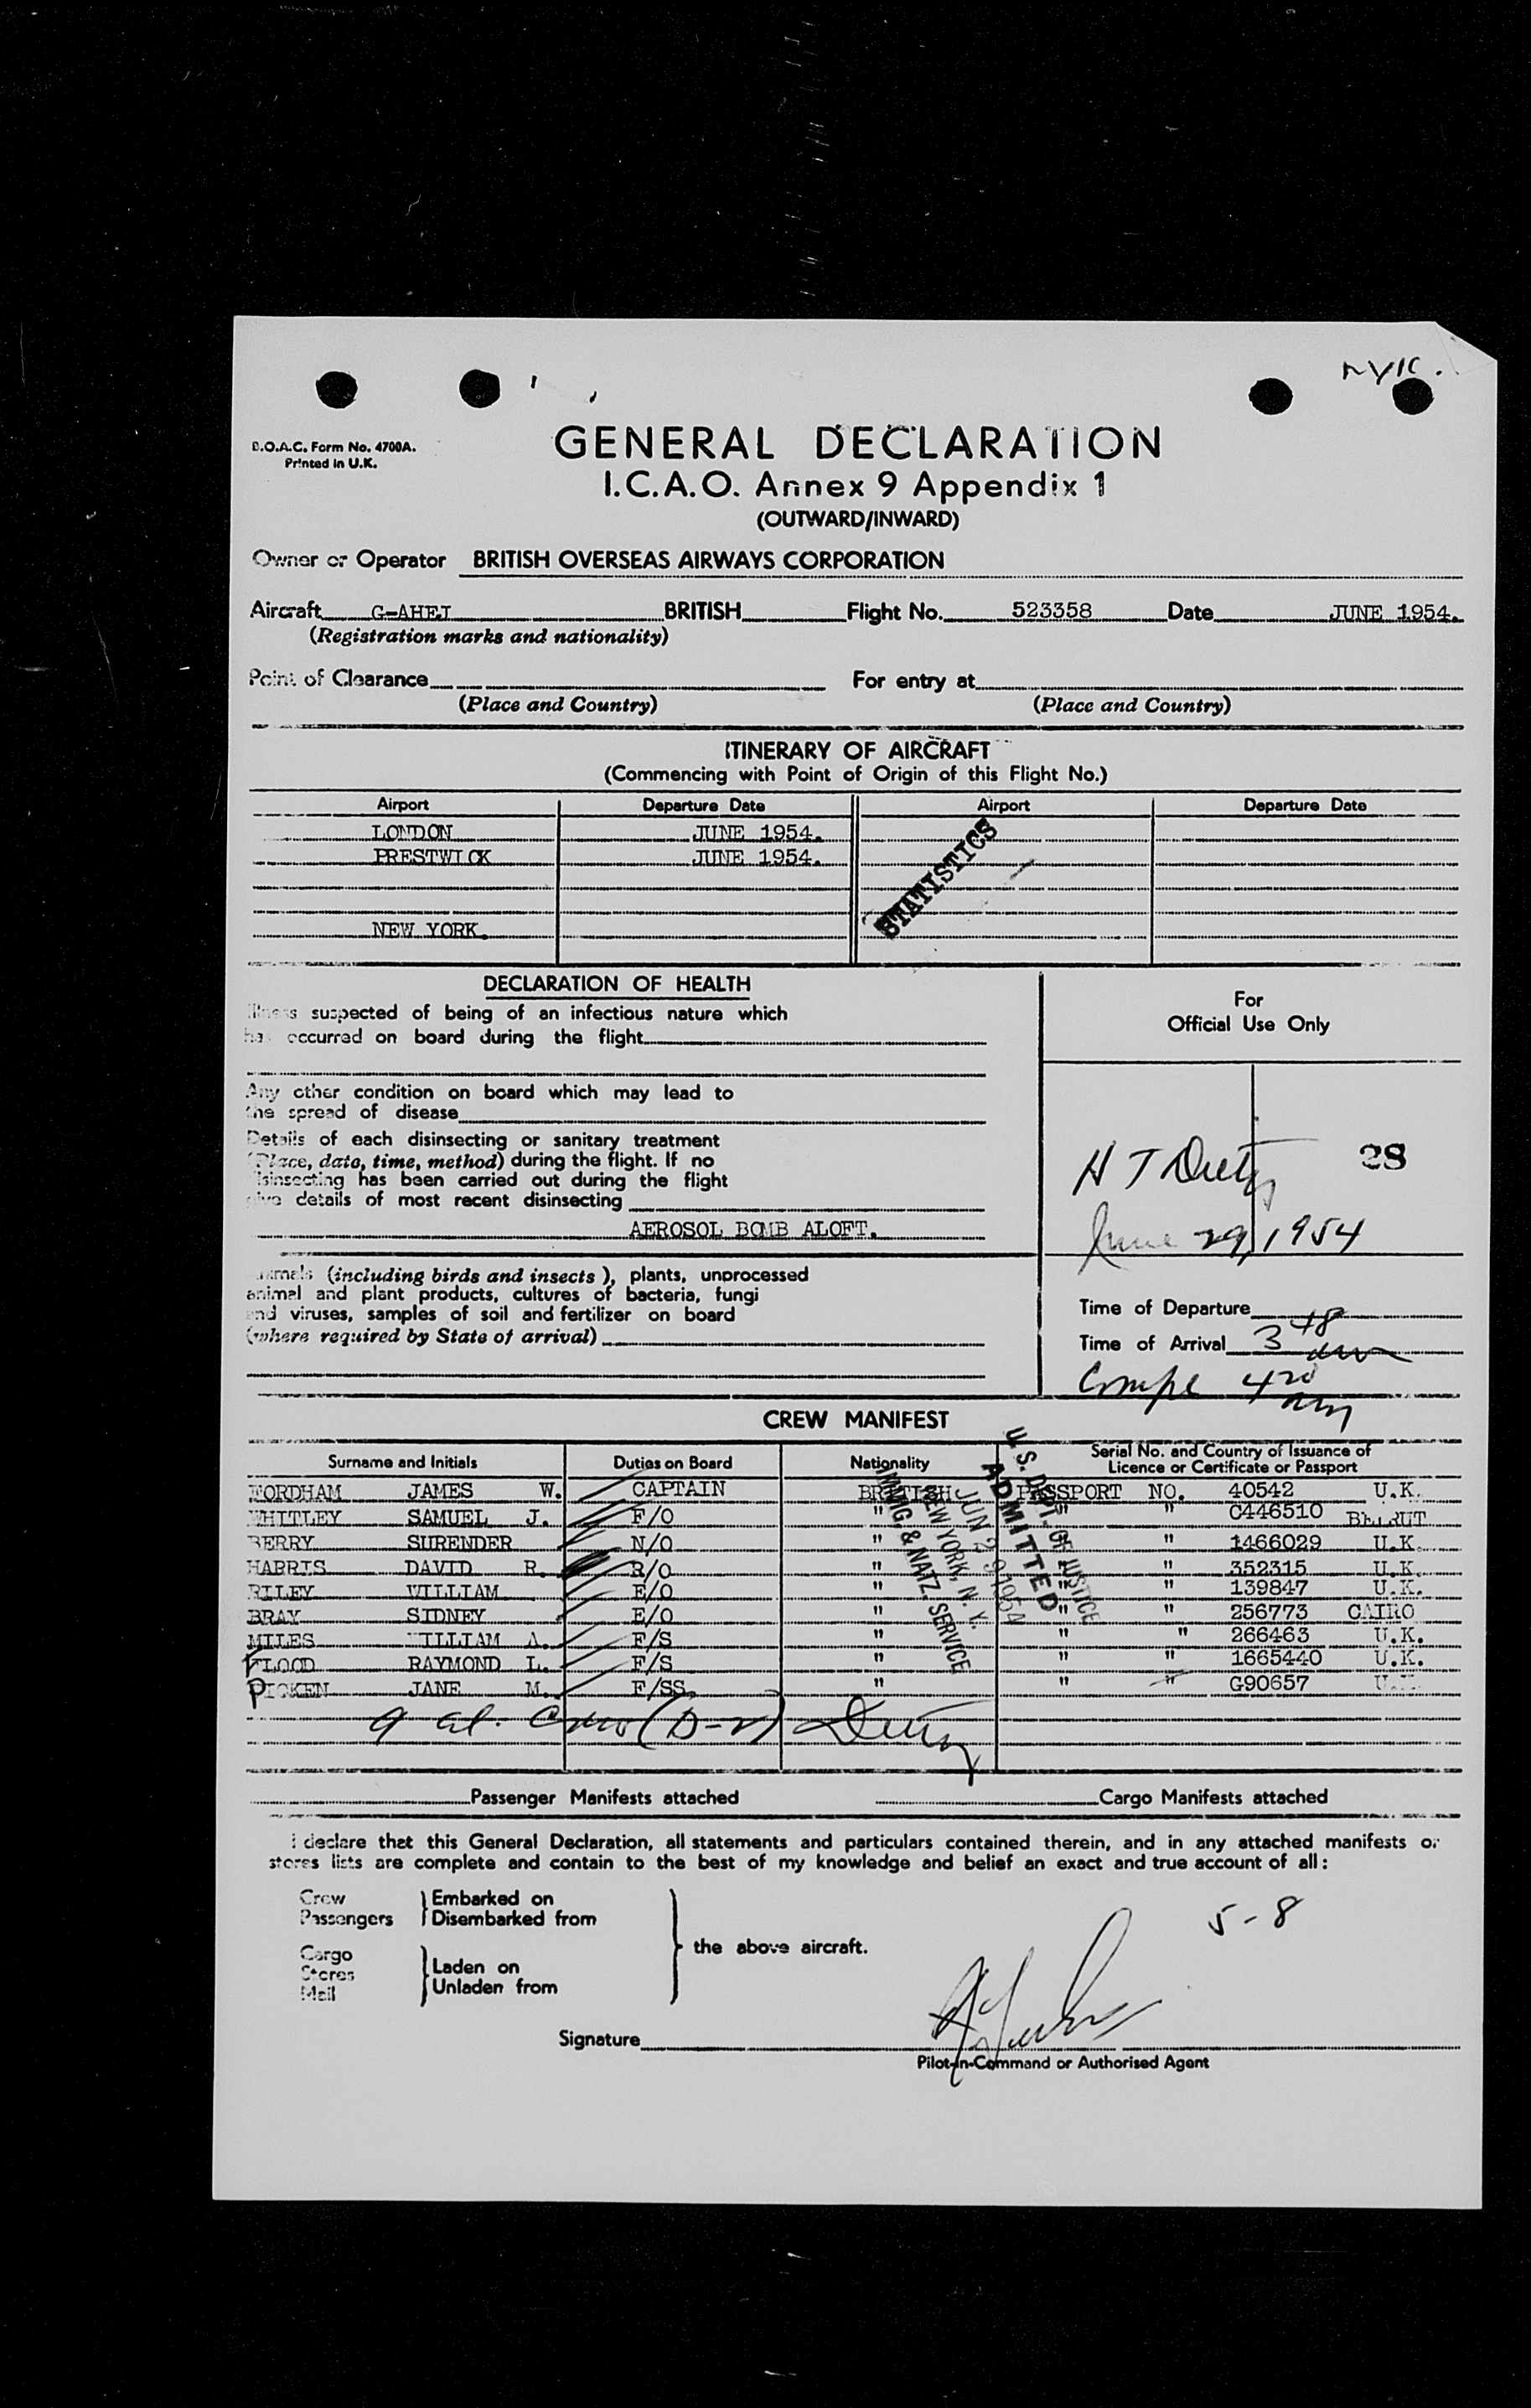 NYK.
B.O.A.C. Form No. 4700A.
Printed in U.K.
GENERAL DECLARATION
I.C.A.O. Annex 9 Appendix 1
(OUTWARD/INWARD)
Owner or Operator BRITISH OVERSEAS AIRWAYS CORPORATION
Aircraft G-AHEJ BRITISH Flight No. 523358 Date JUNE 1954.
(Registration marks and nationality)
Point of Clearance For entry at
(Place and Country) (Place and Country)
ITINERARY OF AIRCRAFT
(Commencing with Point of Origin of this Flight No.)
Airport Departure Date Airport Departure Date
LONDON JUNE 1954.
PRESTWICK JUNE 1954.
STATISTICS
NEW YORK.
DECLARATION OF HEALTH
Illness suspected of being of an infectious nature which
has occurred on board during the flight
Any other condition on board which may lead to
the spread of disease
Details of each disinsecting or sanitary treatment
(Place, date, time, method) during the flight. If no
disinsecting has been carried out during the flight
give details of most recent disinsecting
AEROSOL BOMB ALOFT.
Animals (including birds and insects), plants, unprocessed
animal and plant products, cultures of bacteria, fungi
and viruses, samples of soil and fertilizer on board
(where required by State of arrival)
For
Official Use Only
28
June 29, 1954
Time of Departure
Time of Arrival 3 48
Compl 4 20
CREW MANIFEST
Surname and Initials Duties on Board Nationality Serial No. and Country of Issuance of
Licence or Certificate or Passport
FORDHAM JAMES W. CAPTAIN BRITISH PASSPORT NO. 40542 U.K.
WHITLEY SAMUEL J. F/O " " " C446510 BEIRUT
BERRY SURENDER N/O " " " 1466029 U.K.
HARRIS DAVID R. R/O " " " 352315 U.K.
RILEY WILLIAM E/O " " " 139847 U.K.
BRAY SIDNEY E/O " " " 256773 CAIRO
MILES WILLIAM A. F/S " " " 266463 U.K.
FLOOD RAYMOND L. F/S " " " 1665440 U.K.
PICKEN JANE M. F/SS " " " G90657 U.K.
U. S. DEPT. OF JUSTICE
ADMITTED
JUN 29 1954
NEW YORK, N. Y.
IMMIG. & NATZ. SERVICE
9 al. Crew (D-2)
Passenger Manifests attached Cargo Manifests attached
I declare that this General Declaration, all statements and particulars contained therein, and in any attached manifests or
stores lists are complete and contain to the best of my knowledge and belief an exact and true account of all:
Crew
Passengers
Embarked on
Disembarked from
Cargo
Stores
Mail
Laden on
Unladen from
the above aircraft.
5-8
Signature
Pilot-in-Command or Authorised Agent